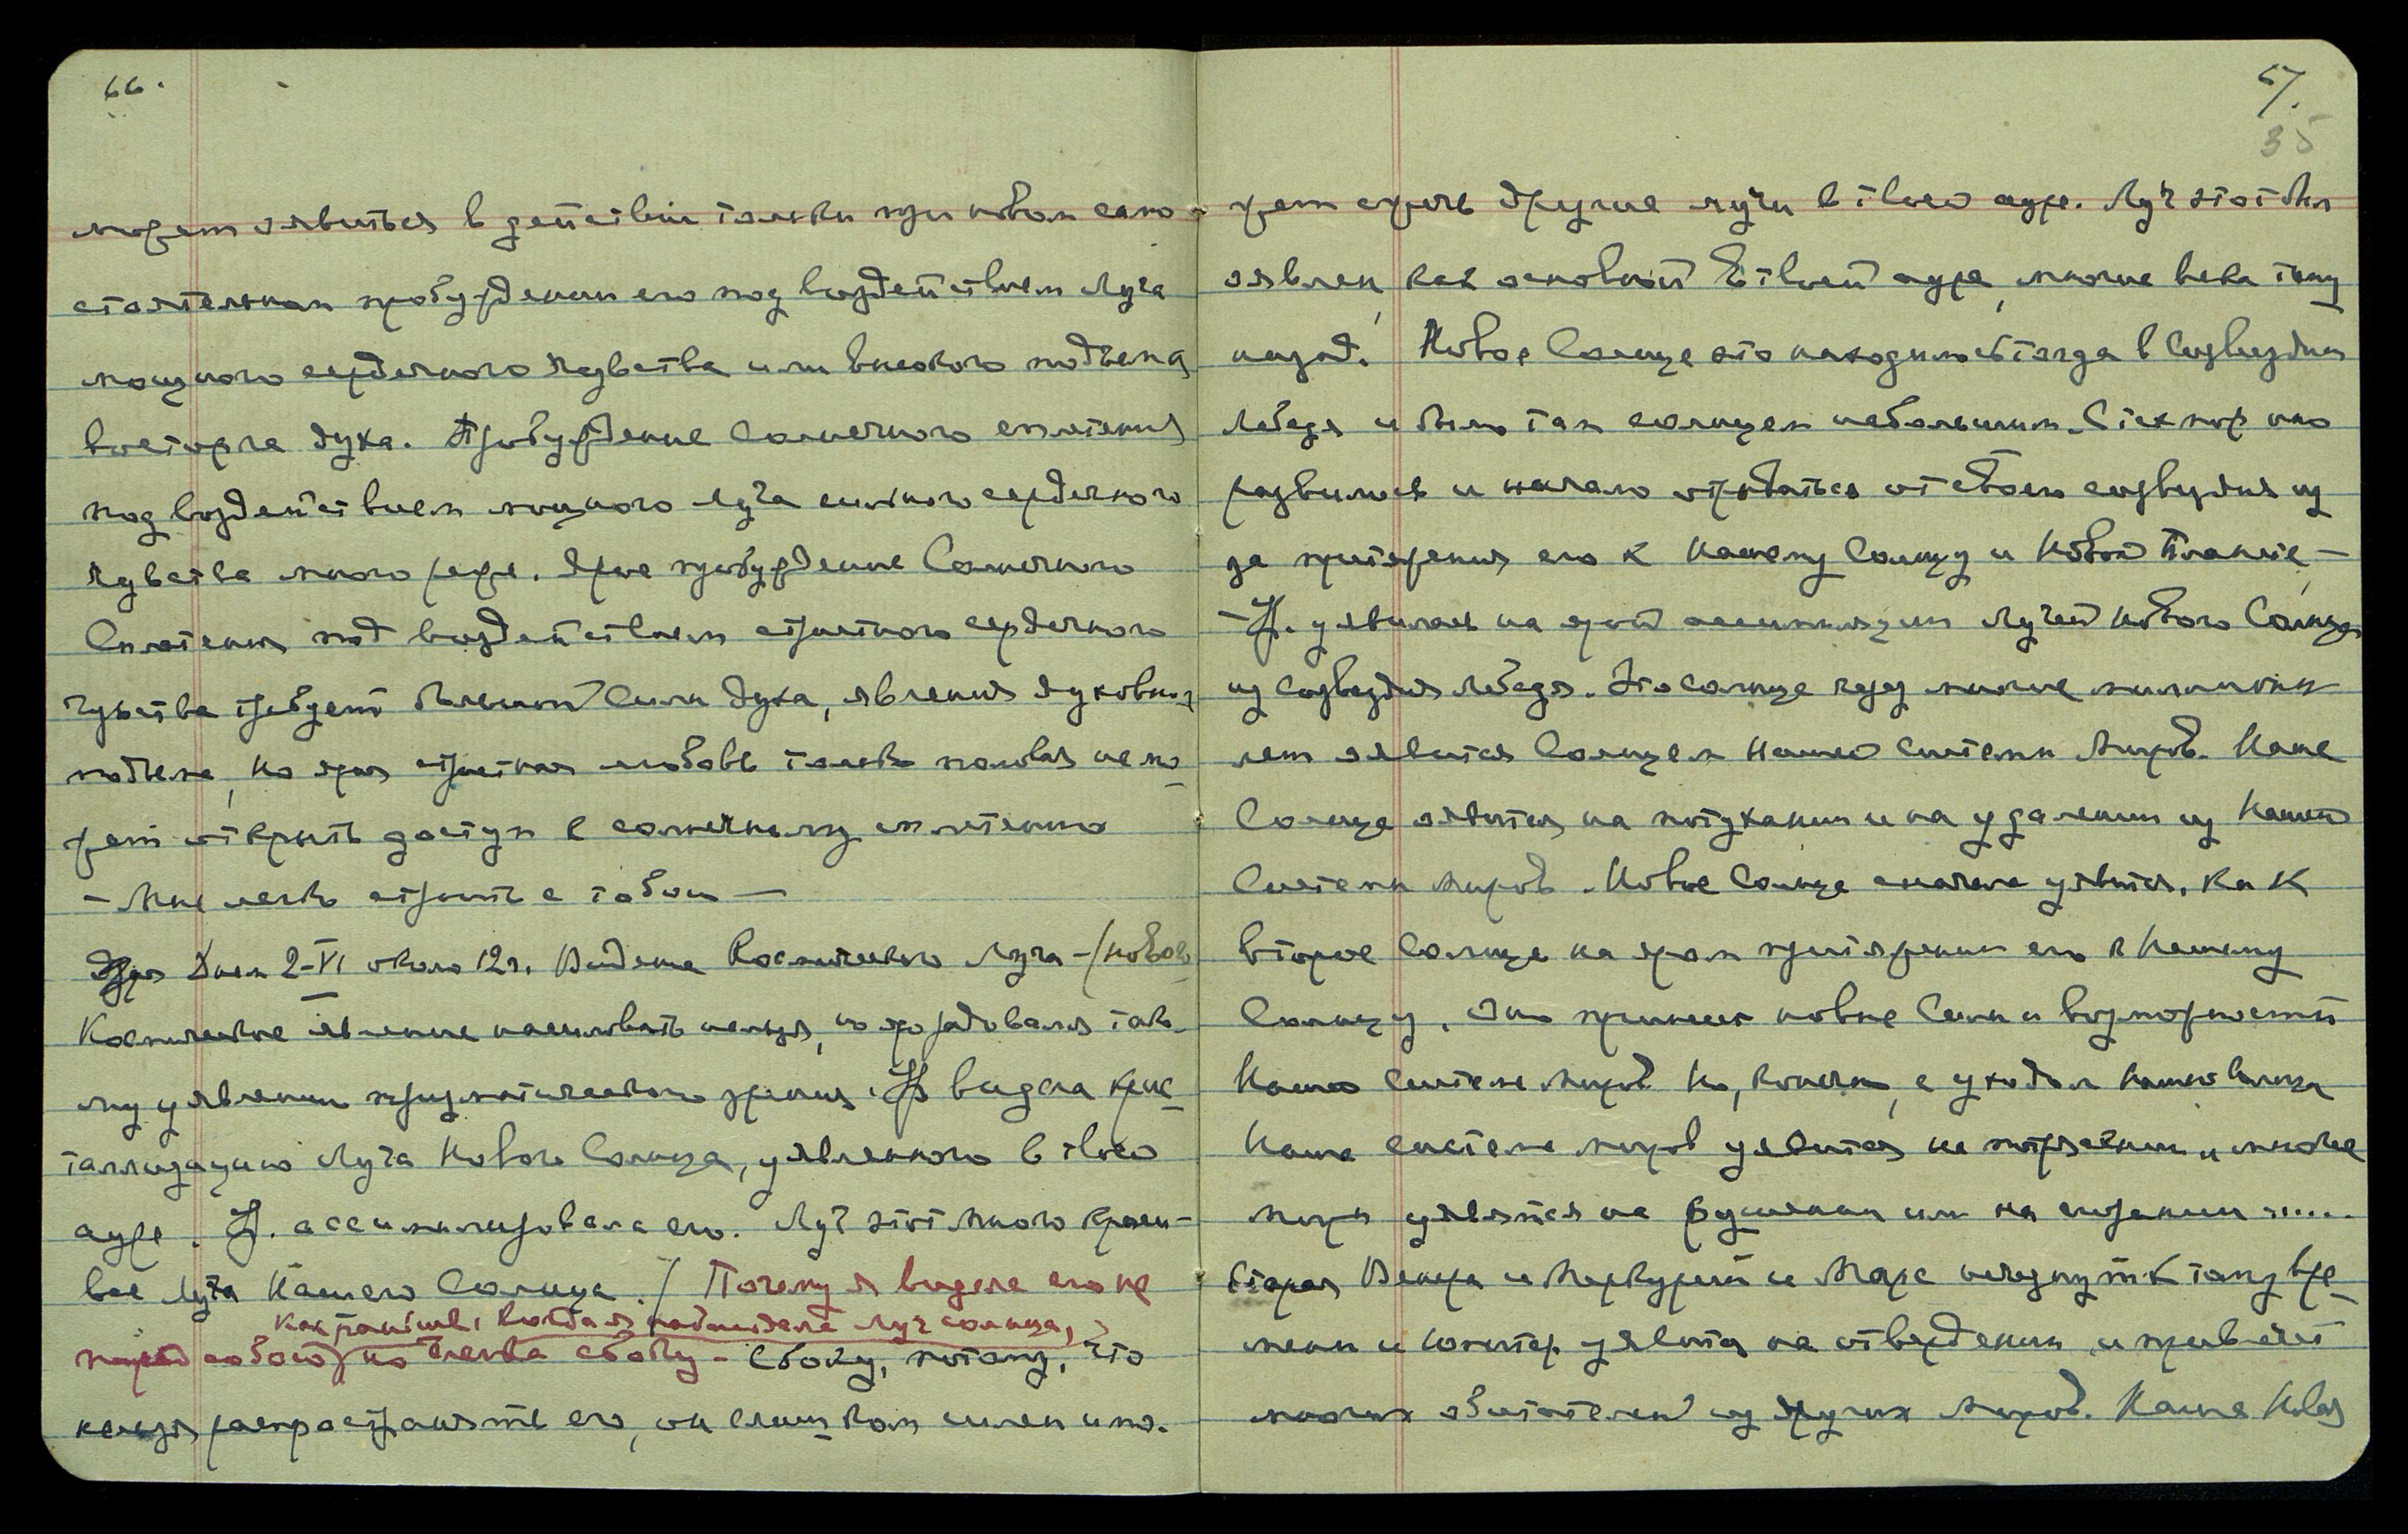 66.
может явиться в действии только при новом само
стоятельном пробуждении его под воздействием Луча
мощного сердечного чувства или высокого подъема
восторга духа. Пробуждение Солнечного сплетения
под воздействием мощного Луча сильного сердечного
чувства много реже. Ярое пробуждение Солнечного
Сплетения под воздействием страстного сердечного
чувства требует большой Силы духа, явления духовного
подъема, но ярая страстная любовь только половая не мо-
жет открыть доступ к солнечному сплетению
— Мне легко строить с тобою —
Днем 2-VI около 12ч. Видение Космического Луча — (новое
Космическое явление насиловать нельзя, но яро радовался тако-
му уявлению призматического зрения. Я видела крис-
таллизацию Луча Нового Солнца, уявленного в твоей
ауре. У. ассимилировала его. Луч этот много краси-
вее Луча Нашего Солнца. / Почему я видела его не
как раньше, когда я наблюдала Луч солнца,
перед собою, но слегка сбоку — Сбоку, потому, что
нельзя распространять его, он слишком силен и мо-
67.
35
жет сжечь другие лучи в твоей ауре. Луч этот был
явлен, как основной в твоей ауре, многие века тому
назад. Новое Солнце это находилось тогда в Созвездии
Лебедя и было там солнцем небольшим. С тех пор оно
развилось и начало отрываться от своего созвездия из
за притяжения его к Нашему Солнцу и Новой Планете —
— У. уявилась на ярой ассимиляции Лучей Нового Солнца
из Созвездия Лебедя. Это солнце через многие миллионы
лет явится Солнцем Нашей Системы Миров. Наше
Солнце явится на потухании и на удалении из Нашей
Системы Миров. Новое Солнце сначала уявится, как
второе Солнце на яром притяжении его к Нашему
Солнцу. Оно принесет новые Силы и возможности
Нашей Системе Миров. Но, конечно, с уходом Нашего Солнца
Наша система миров уявится на потрясении и многие
миры уявятся на рушении или на сгорании .....
Старая Венера и Меркурий и Марс исчезнут к тому вре-
мени и Юпитер уявится на отвердении и привлечет
многих обитателей из других Миров. Наша Новая